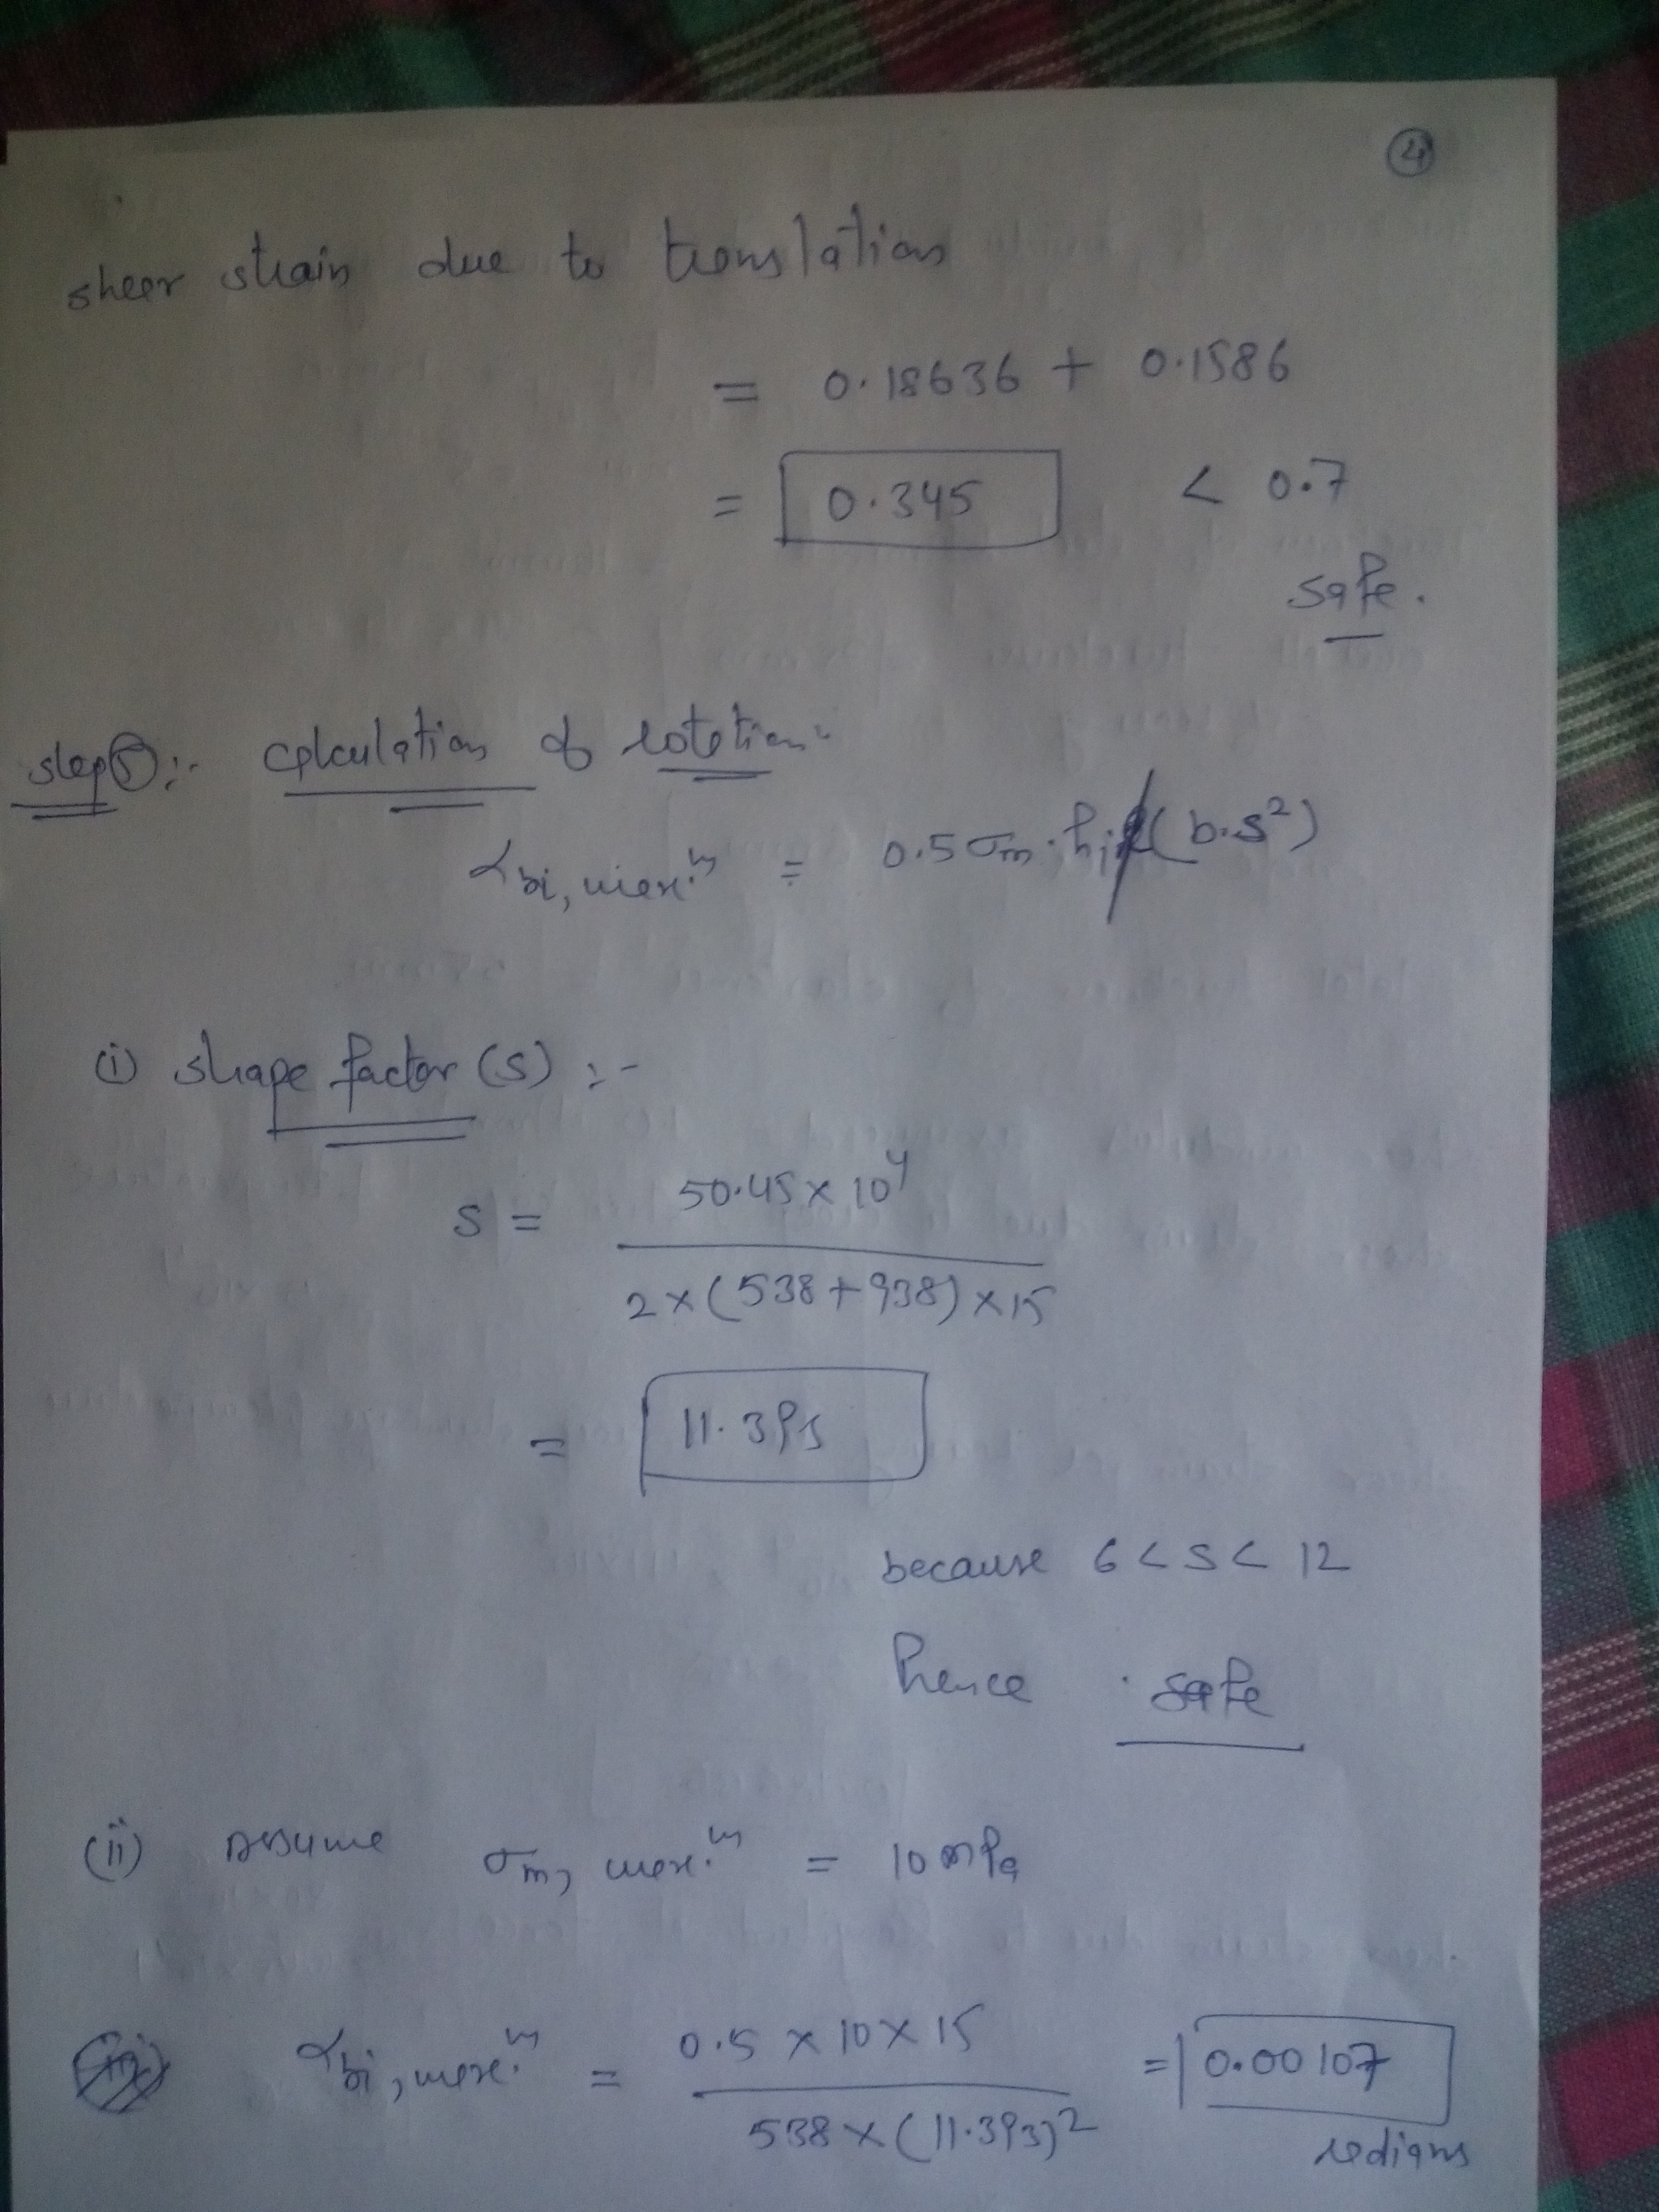 4
sheer strain due to translation
= 0.18636 + 0.1586
= 0.345 < 0.7
safe.
step 5:- calculation of rotation:-
α bi, max.m = 0.5 σm . hi / (b.s²)
(i) shape factor (s) :-
s = 50.45 × 10⁴
2 × (538 + 938) × 15
= 11.393
because 6 < s < 12
hence safe
(ii) Assume σm, max.m = 10 mPa
α bi, max.m = 0.5 × 10 × 15 = 0.00107
538 × (11.393)²
radians